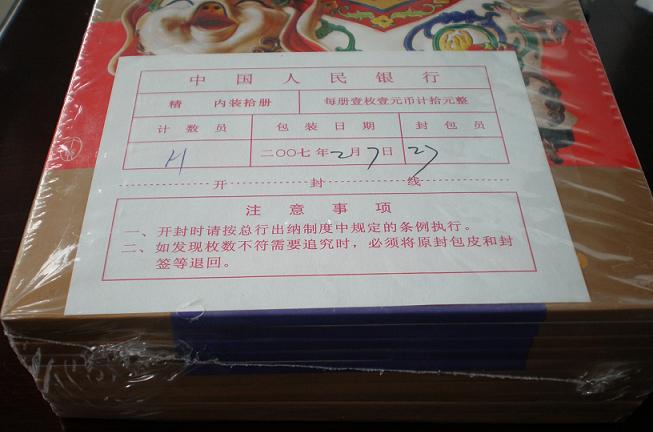 中国人民银行
精 内装拾册 每册壹枚壹元币计拾元整
计数员 包装日期 封包员
二〇〇七年2月7日
开封线
注意事项
一、开封时请按总行出纳制度中规定的条例执行。
二、如发现枚数不符需要追究时，必须将原封包皮和封
签等退回。